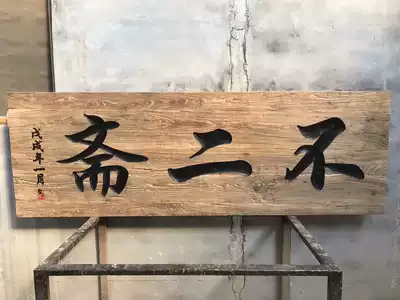 不二斋
戊戌年一月